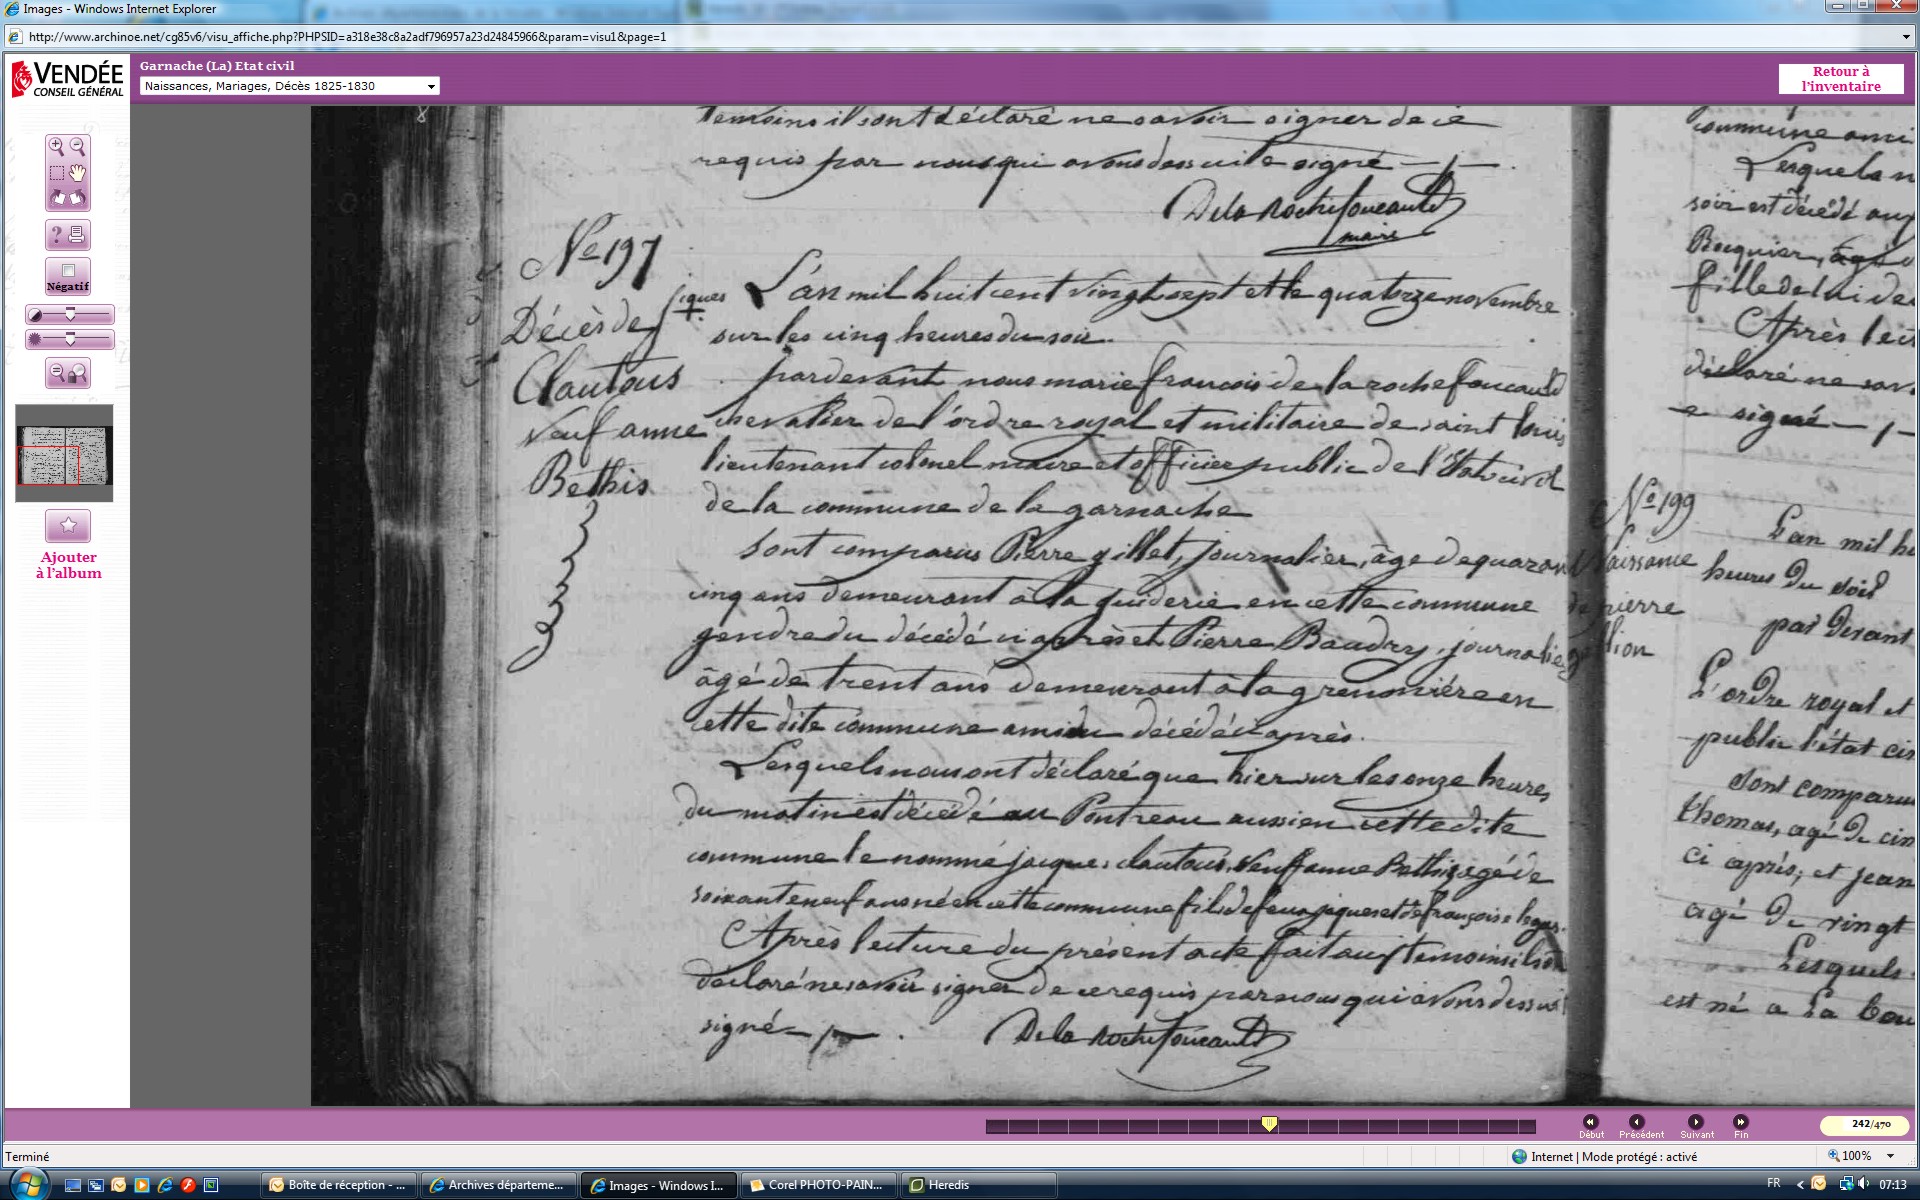 Images - Windows Internet Explorer
http://www.archinoe.net/cg85v6/visu_affiche.php?PHPSID=a318e38c8a2adf796957a23d24845966&param=visu1&page=1
VENDÉE
CONSEIL GÉNÉRAL
Garnache (La) Etat civil
Naissances, Mariages, Décès 1825-1830
Retour à
l'inventaire
Négatif
Ajouter
à l'album
8
temoins ils ont déclaré ne savoir signer de ce
requis par nous qui avons dessuite signé
De la Rochefoucauld
maire
No 197
Décès de jaques
Clautous
veuf anne
Bethis
L'an mil huit cent vingt sept et le quatorze novembre
sur les cinq heures du soir.
pardevant nous marie francois de la rochefoucauld
chevalier de l'ordre royal et militaire de saint louis
lieutenant colonel maire et officier public de l'Etat civil
de la commune de la garnache
sont comparus Pierre gillet, journalier, âge de quarante
cinq ans demeurant à la guiderie en cette commune
gendre du décédé ci après et Pierre Baudry, journalier
âgé de trent ans demeurant à la grenonière en
cette dite commune ami du décédé ci après.
Lesquels nous ont déclaré que hier sur les onze heures
du matin est décédé au Pontreau aussi en cette dite
commune le nommé jacques clautous, veuf anne Bethis agé de
soixante neuf ans né en cette commune fils de feux jaques et de françoise
Après lecture du présent acte fait aux temoins ils ont
déclaré ne savoir signer de ce requis par nous qui avons dessuite
signé
De la Rochefoucauld
commune ami
Lesquels n
soir est décédé au
Bocquier, agé
fille de lui de
Après lec
déclaré ne sav
e signé
No 199
Naissance
de pierre
L'an mil h
heures du soir
par devant
L'ordre royal et
public l'état civ
sont comparu
thomas, agé de cin
ci après, et jean
agé de vingt
Lesquels
est né a La
Début
Précédent
Suivant
Fin
242/470
Terminé
Internet | Mode protégé : activé
100%
Boîte de réception - ...
Archives départeme...
Images - Windows I...
Corel PHOTO-PAIN...
Heredis
FR
07:13